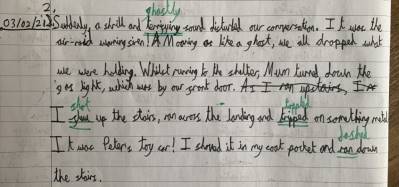 2.
ghostly
03/02/21 Suddenly, a shrill and terrifying sound disturbed our conversation. It was the
air-raid warning siren! A Moaning as like a ghost, we all dropped what
we were holding. Whilst running to the shelter, Mum turned down the
gas light, which was by our front door. As I ran upstairs, I
shot tripped
I up the stairs, ran across the landing and tripped on something metal
dashed
It was Peters toy car! I shoved it in my coat pocket and ran down
the stairs.